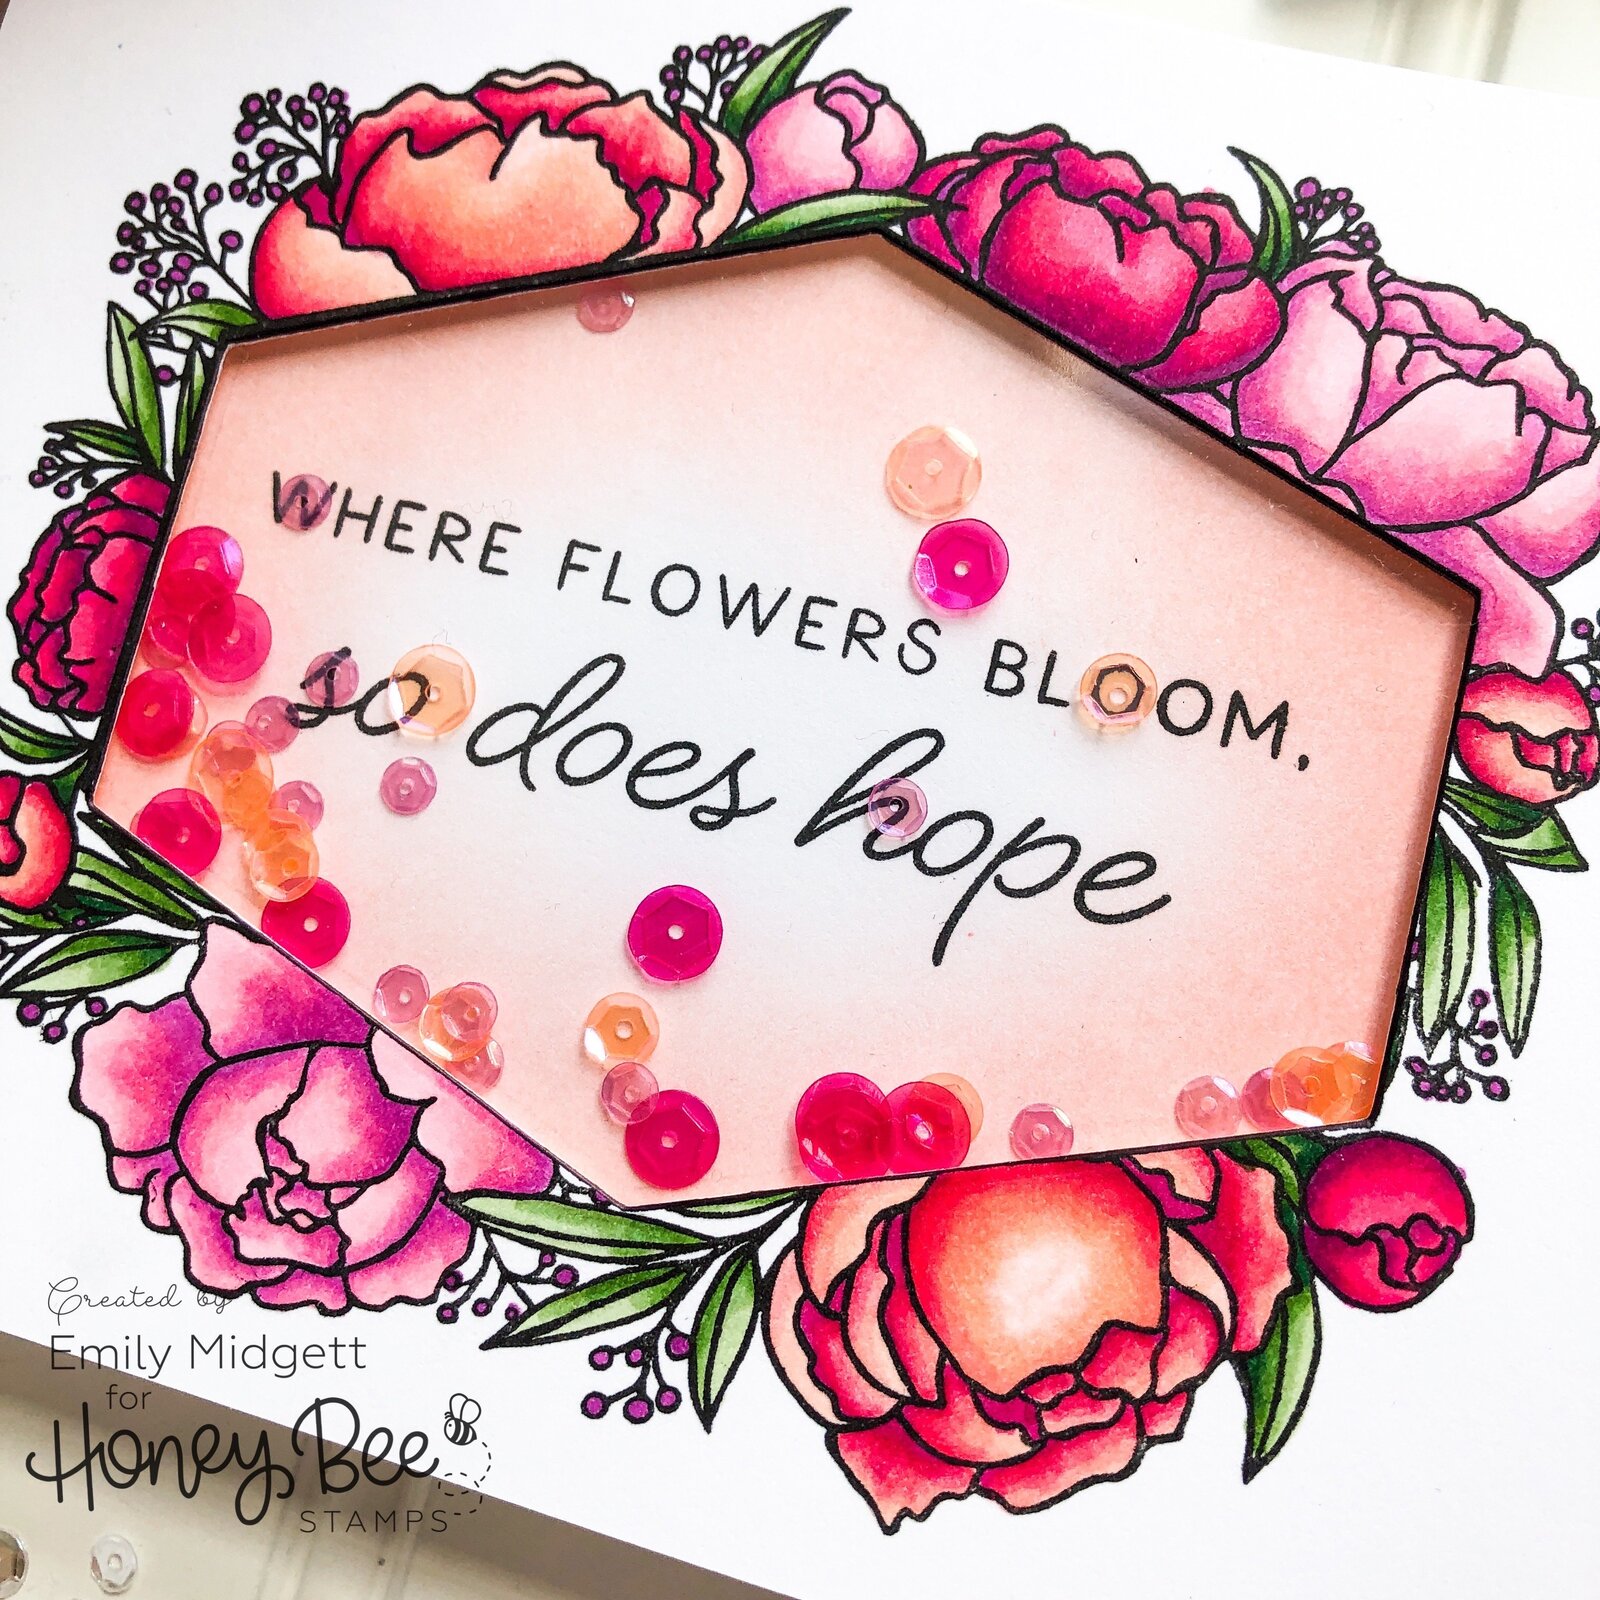 WHERE FLOWERS BLOOM,
so does hope
Created by
Emily Midgett
for
Honey Bee
STAMPS